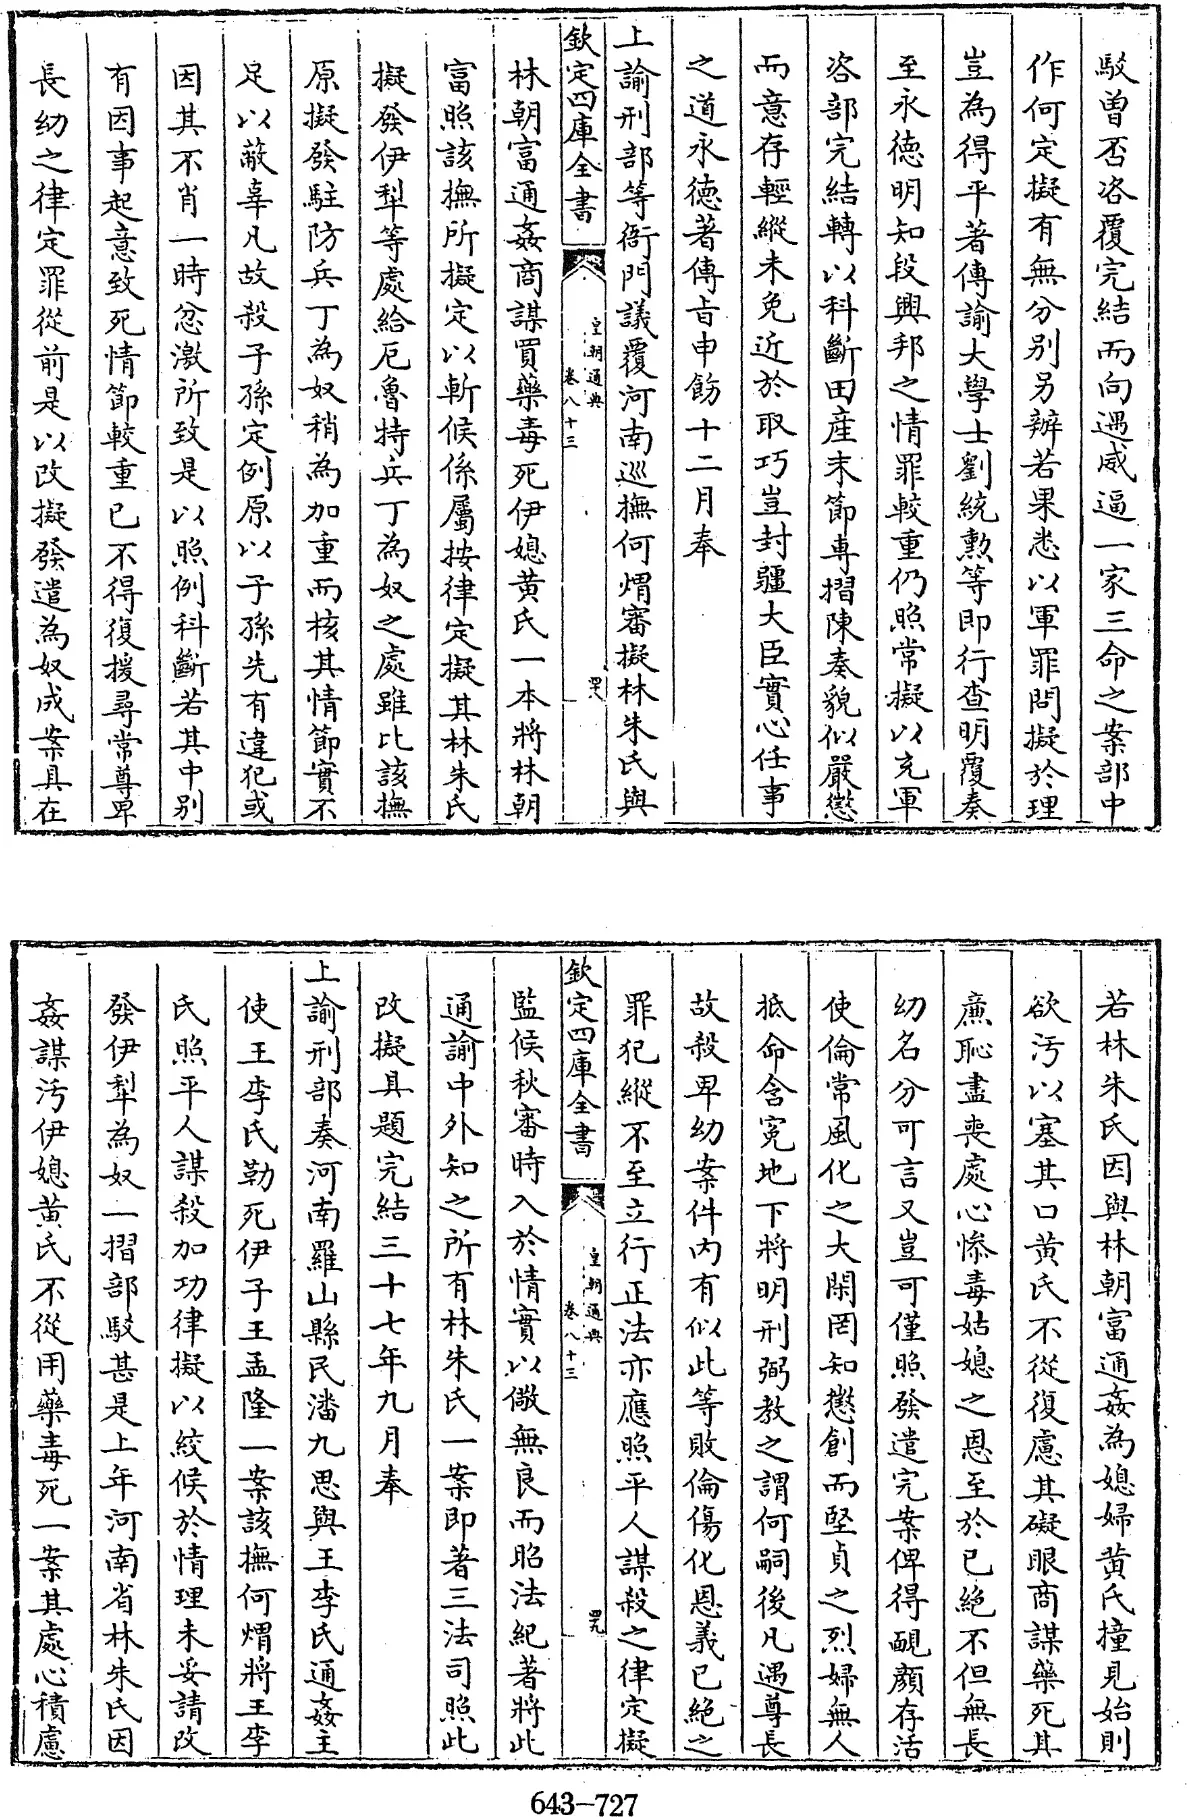 駁曽否咨覆完結而向遇威逼一家三命之案部中
作何定擬有無分别另辦若果悉以軍罪問擬於理
豈為得平著傳諭大學士劉統勲等即行查明覆奏
至永徳明知段興邦之情罪較重仍照常擬以充軍
咨部完結轉以科斷田産末節専摺陳奏貌似嚴懲
而意存輕縱未免近於取巧豈封疆大臣實心任事
之道永徳著傳旨申飭十二月奉
上諭刑部等衙門議覆河南巡撫何煟審擬林朱氏與
欽定四庫全書
皇朝通典
卷八十三
四八
林朝富通姦商謀買藥毒死伊媳黄氏一本將林朝
富照該撫所擬定以斬候係屬按律定擬其林朱氏
擬發伊犁等處給厄魯特兵丁為奴之處雖比該撫
原擬發駐防兵丁為奴稍為加重而核其情節實不
足以蔽辜凡故殺子孫定例原以子孫先有違犯或
因其不肖一時忿激所致是以照例科斷若其中别
有因事起意致死情節較重已不得復援尋常尊卑
長幼之律定罪從前是以改擬發遣為奴成案具在
若林朱氏因與林朝富通姦為媳婦黄氏撞見始則
欲汚以塞其口黄氏不從復慮其礙眼商謀藥死其
㢘恥盡喪處心慘毒姑媳之恩至於已絶不但無長
幼名分可言又豈可僅照發遣完案俾得靦顔存活
使倫常風化之大閑罔知懲創而堅貞之烈婦無人
抵命含寃地下將明刑弼教之謂何嗣後凡遇尊長
故殺卑幼案件内有似此等敗倫傷化恩義已絶之
罪犯縱不至立行正法亦應照平人謀殺之律定擬
欽定四庫全書
皇朝通典
卷八十三
四九
監候秋審時入於情實以儆無良而昭法紀著將此
通諭中外知之所有林朱氏一案即著三法司照此
改擬具題完結三十七年九月奉
上諭刑部奏河南羅山縣民潘九思與王李氏通姦主
使王李氏勒死伊子王孟隆一案該撫何煟將王李
氏照平人謀殺加功律擬以絞候於情理未妥請改
發伊犁為奴一摺部駁甚是上年河南省林朱氏因
姦謀汚伊媳黄氏不從用藥毒死一案其處心積慮
643-727